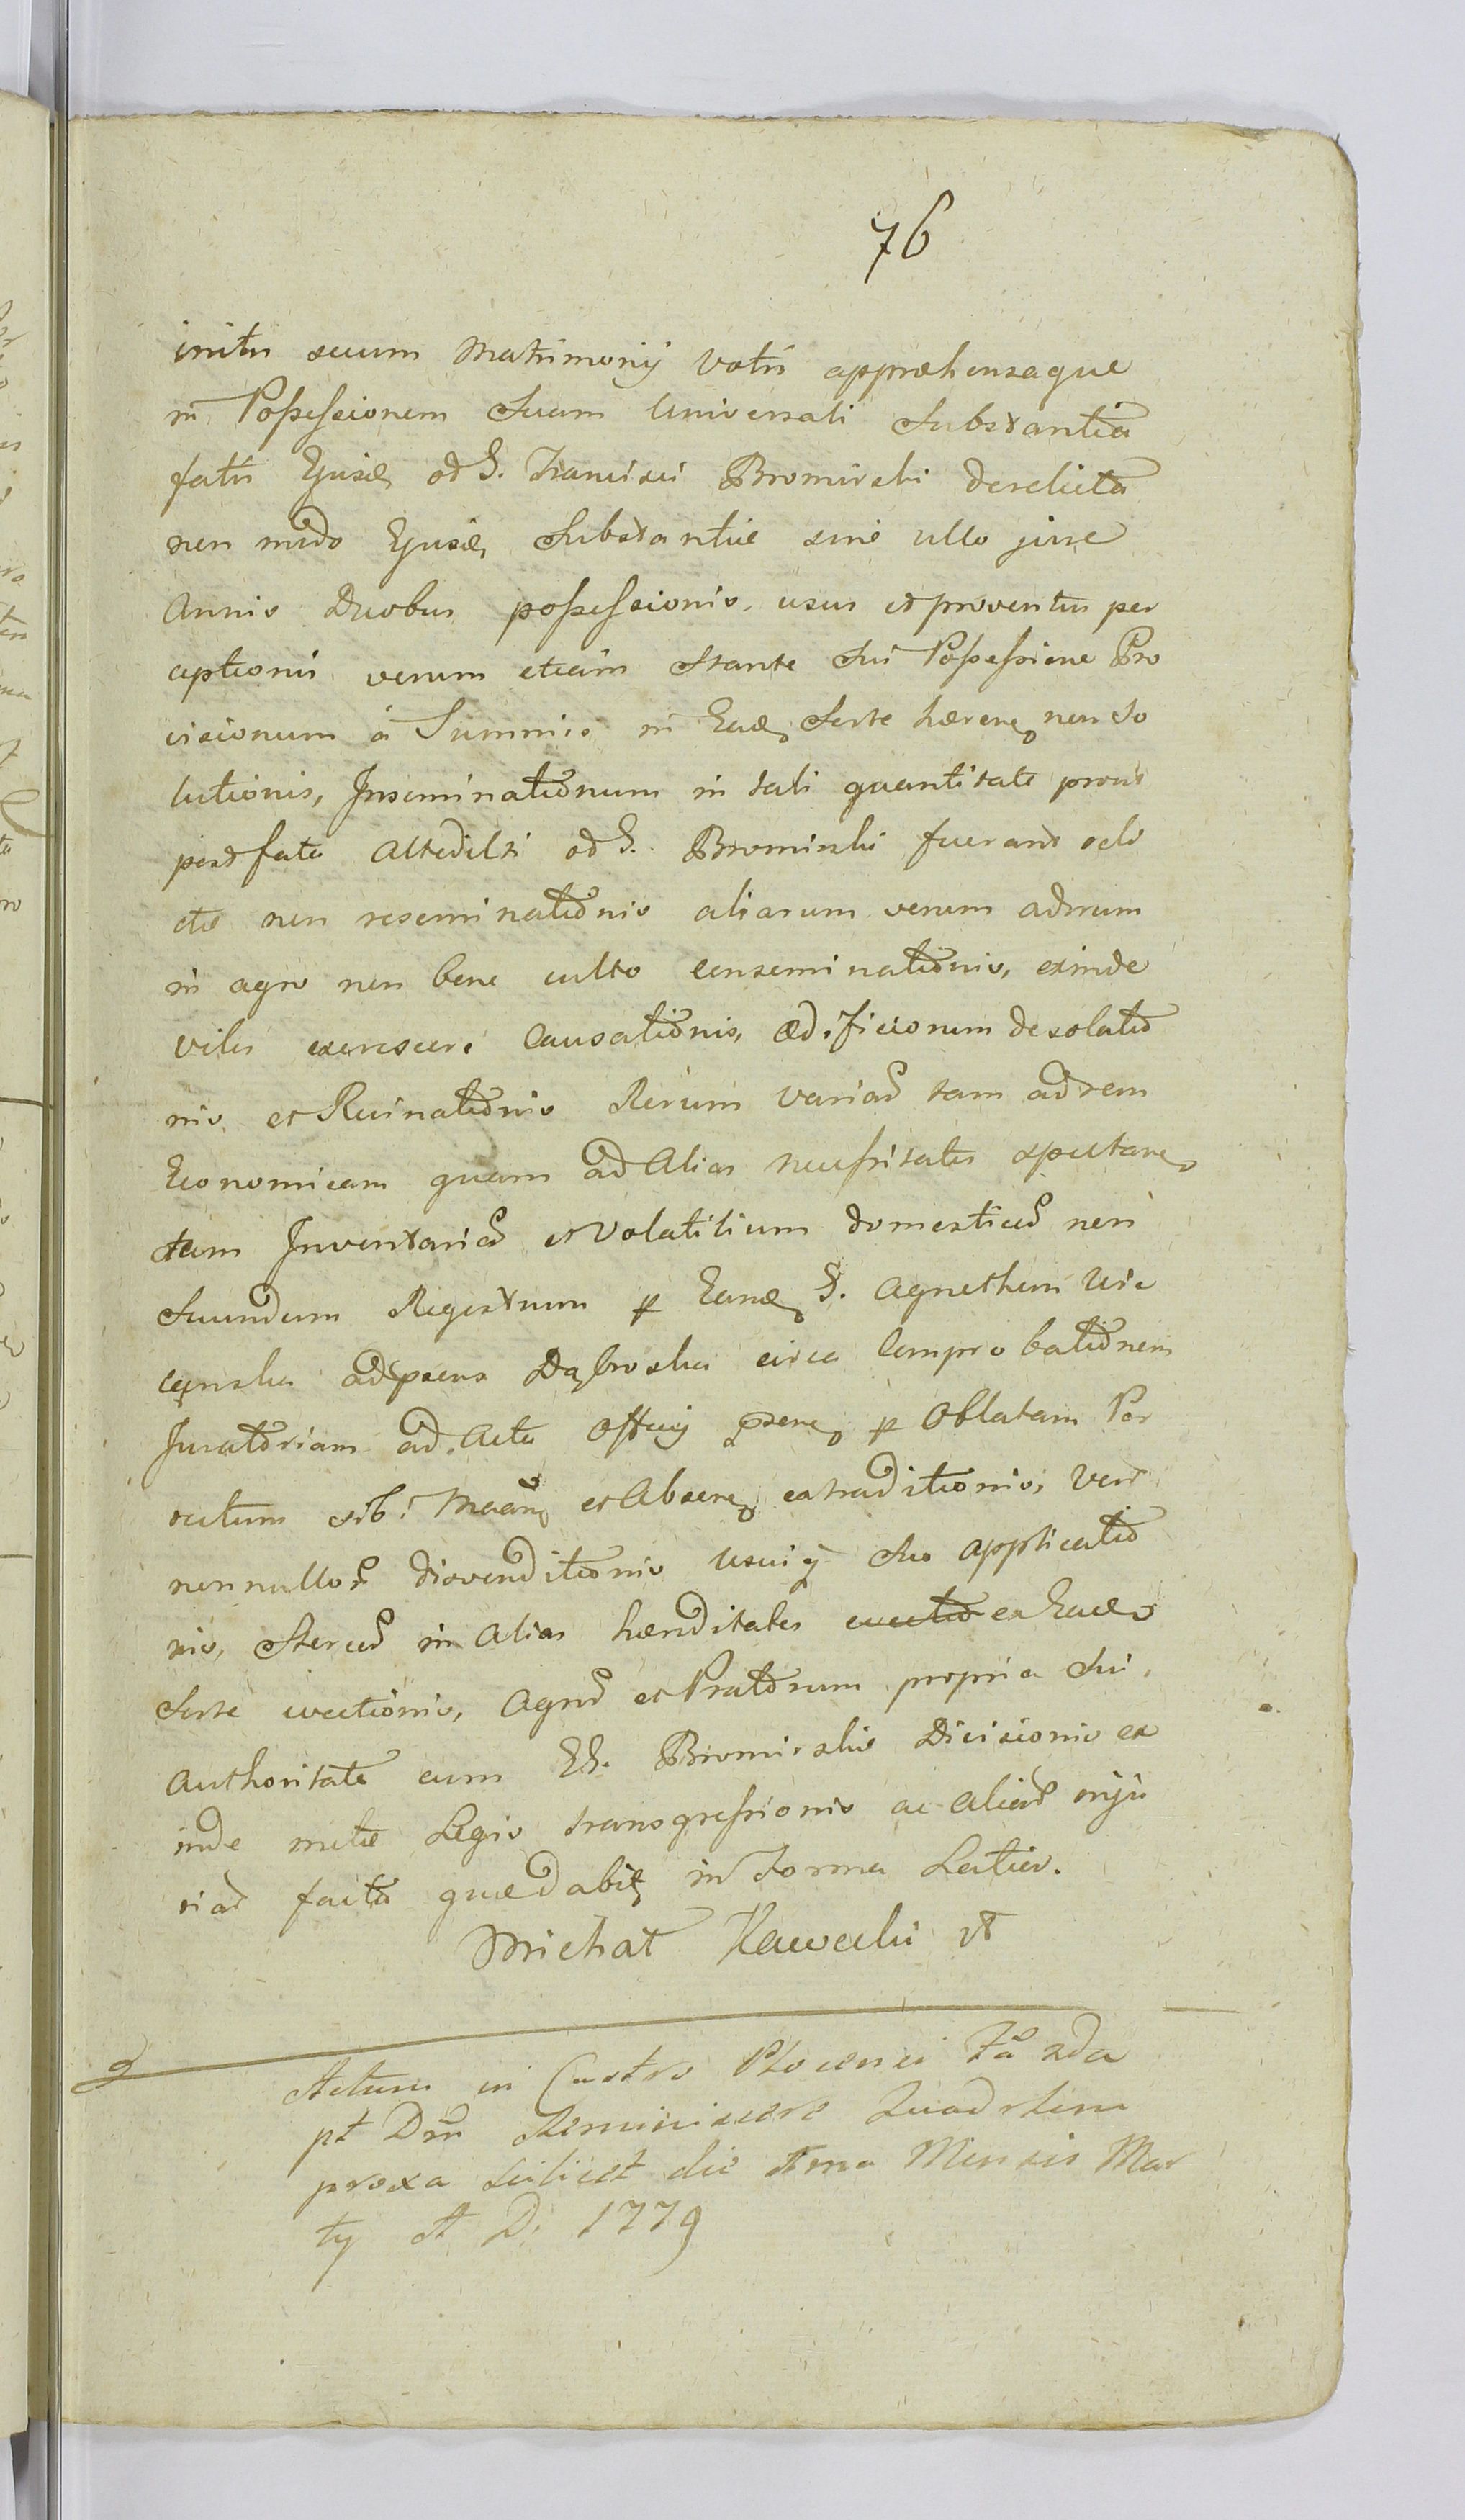 76
initu secum Matrimonij Voti appraehensaque
in Possessionem Suam Universali Substantia
fati Ejusd. od G. Francisci Bromirski derelicta
non modo Ejusd. Substantiae sine ullo jure
Annis Duobus possessionis, usus et proventus per
ceptionis verum etiam Stante Sui Possessione Pro
visionum a Summis in Ead. Sorte haeren. non so
lutionis, Inseminationum in tali quantitate prout
post fata Altedicti od G. Bromirski fuerant reli
ctae non reseminationis aliarum verum adrum
in agro non bene culto Conseminationis, exinde
vilis excrescere Causationis, aedificiorum desolatio
nis et Ruinationis Rerum variar. tam ad rem
Economicam quam ad Alias necessitates spectan.
tam Inventarior. et Volatilium domesticor. non
Secundum Regestrum p Eand. G. Agnethem Uie
cynska adpraesens Dąbroska circa Comprobationem
Juratoriam ad Acta Officij praesen. p Oblatam Por
rectum sibi et Absen. extraditionis, Vero
nonnullor. disvenditionis usuiq suo applicatio
nis, Stercor. in Alias haereditates evectio ex Ead.
Sorte evectionis, Agror. et Pratorum propria Sui
Authoritate cum G. Bromirskie Divisionis ex
inde metae Legis transgressionis ac aliar. inju
riar facta quaedabit in Forma Latior.
Michał Kawecki
Actum in Castro Plocensi Fa 2da
pt Dm Reminiscere Quadrlem
proxa Scilicet die 1ma Mensis Mar
ty A D. 1779